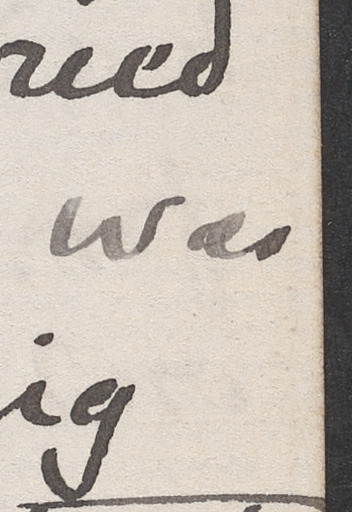 ried
was
ig